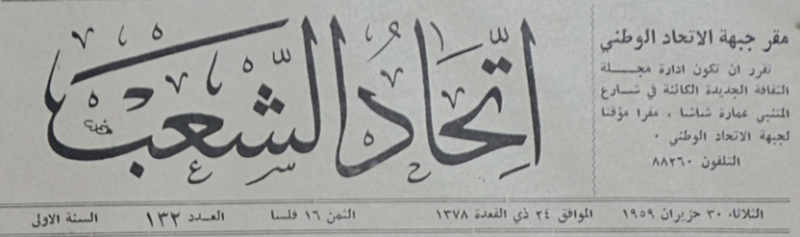 اتحاد الشعب
مقر جبهة الاتحاد الوطني
تقرر ان تكون ادارة مجلة
الثقافة الجديدة الكائنة في شارع
المتنبي عمارة شاشا ، مقرا مؤقتا
لجبهة الاتحاد الوطني ٠
التلفون ٨٨٢٦٠
الثلاثاء ٣٠ حزيران ١٩٥٩ الموافق ٢٤ ذي القعدة ١٣٧٨ الثمن ١٦ فلسا العدد ١٣٢ السنة الاولى